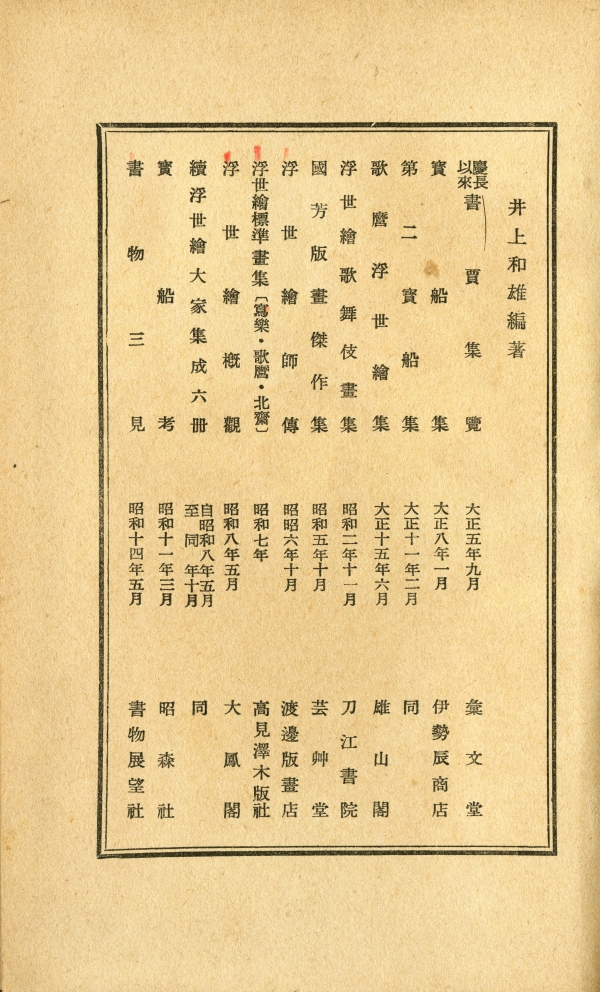 井上和雄編著
慶長以來書賈集覽 大正五年九月 彙文堂
寳船集 大正八年一月 伊勢辰商店
第二寳船集 大正十一年二月 同
歌麿浮世繪集 大正十五年六月 雄山閣
浮世繪歌舞伎畫集 昭和二年十一月 刀江書院
國芳版畫傑作集 昭和五年十月 芸艸堂
浮世繪師傳 昭昭六年十月 渡邊版畫店
浮世繪標準畫集〔寫樂・歌麿・北齋〕 昭和七年 高見澤木版社
浮世繪槪觀 昭和八年五月 大鳳閣
續浮世繪大家集成六册 自昭和八年五月至同年十月 同
寳船考 昭和十一年三月 昭森社
書物三見 昭和十四年五月 書物展望社